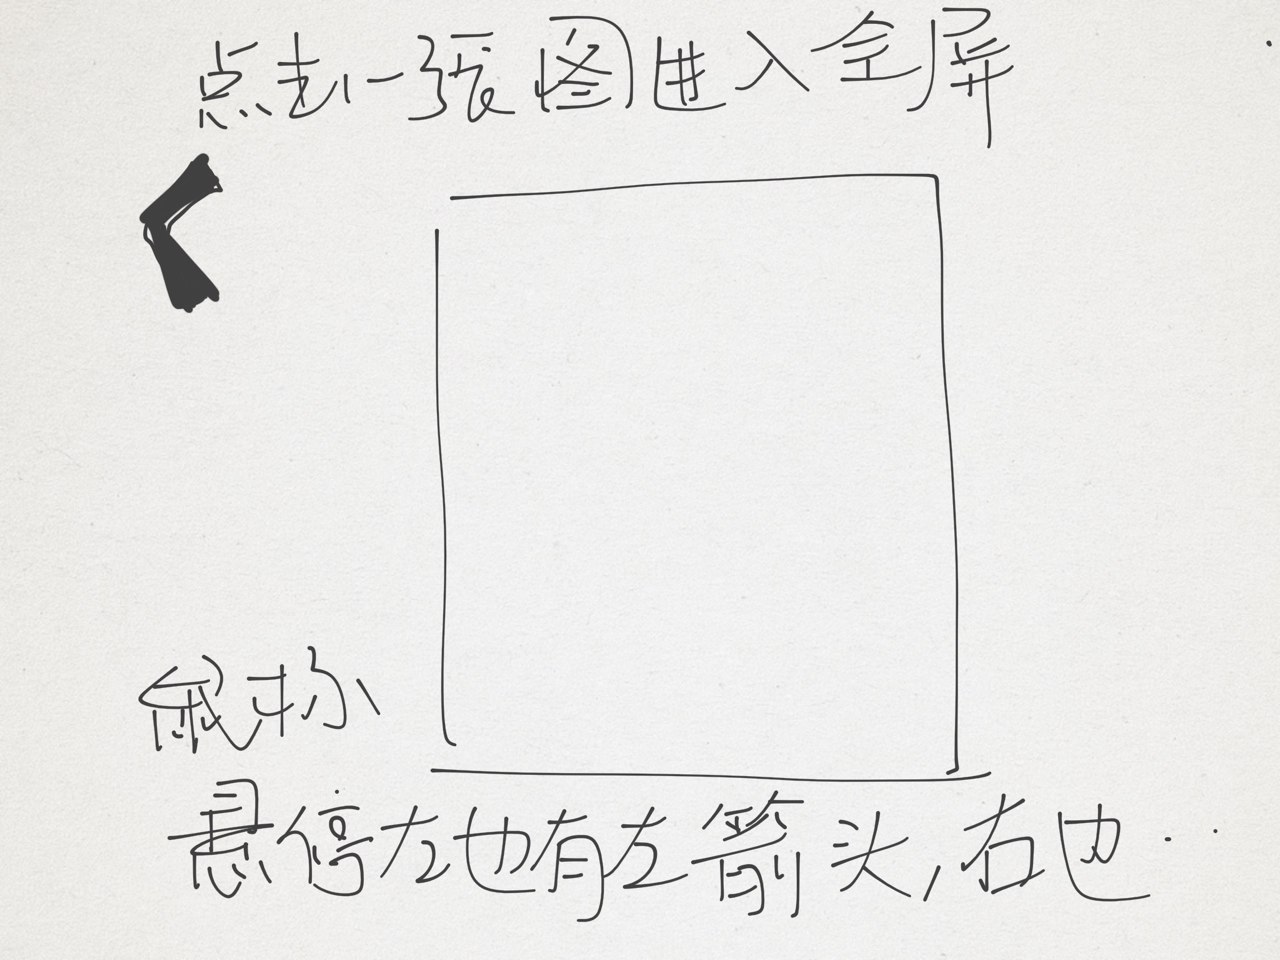 点击一张图进入全屏
鼠标
悬停左也有左箭头,右也..